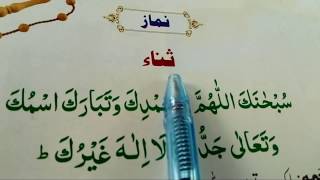 نماز
ثناء
سُبْحٰنَكَ اللّٰهُمَّ وَتَبَارَكَ اسْمُكَ
وَتَعَالٰى اِلٰهَ غَيْرُكَ ط